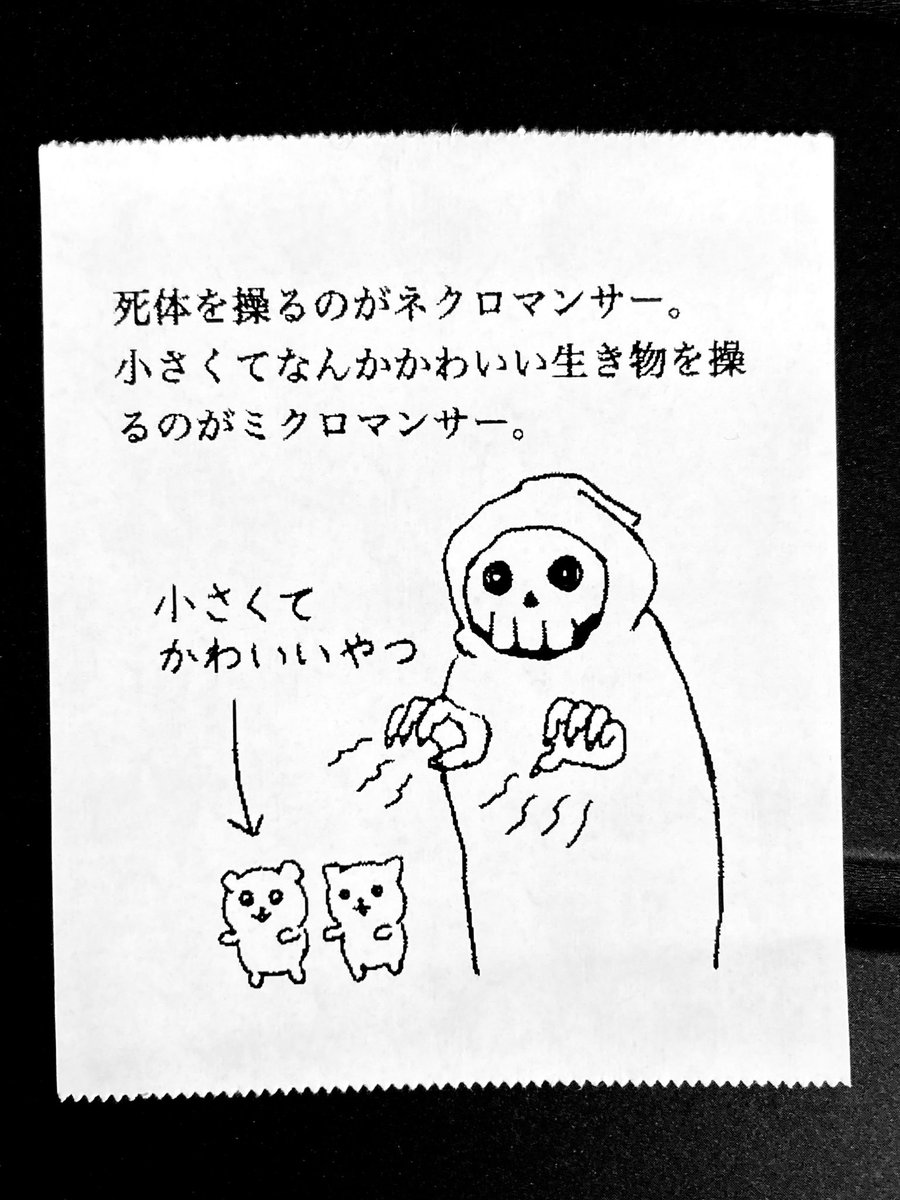 死体を操るのがネクロマンサー。
小さくてなんかかわいい生き物を操
るのがミクロマンサー。
小さくて
かわいいやつ